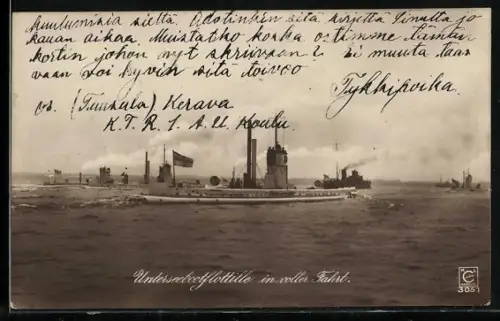 kuulumisia sieltä. Odotinkin sitä kirjettä Sinulta jo
kauan aikaa Muistatko koska ostimme tämän
kortin johon nyt skriivaan? Ei muuta taas
vaan voi hyvin sitä toivoo
Tykkipoika.
os. (Tuusula) Kerava
K.T.R. I A.U. Koulu.
Unterseebootflottille in voller Fahrt.
3051